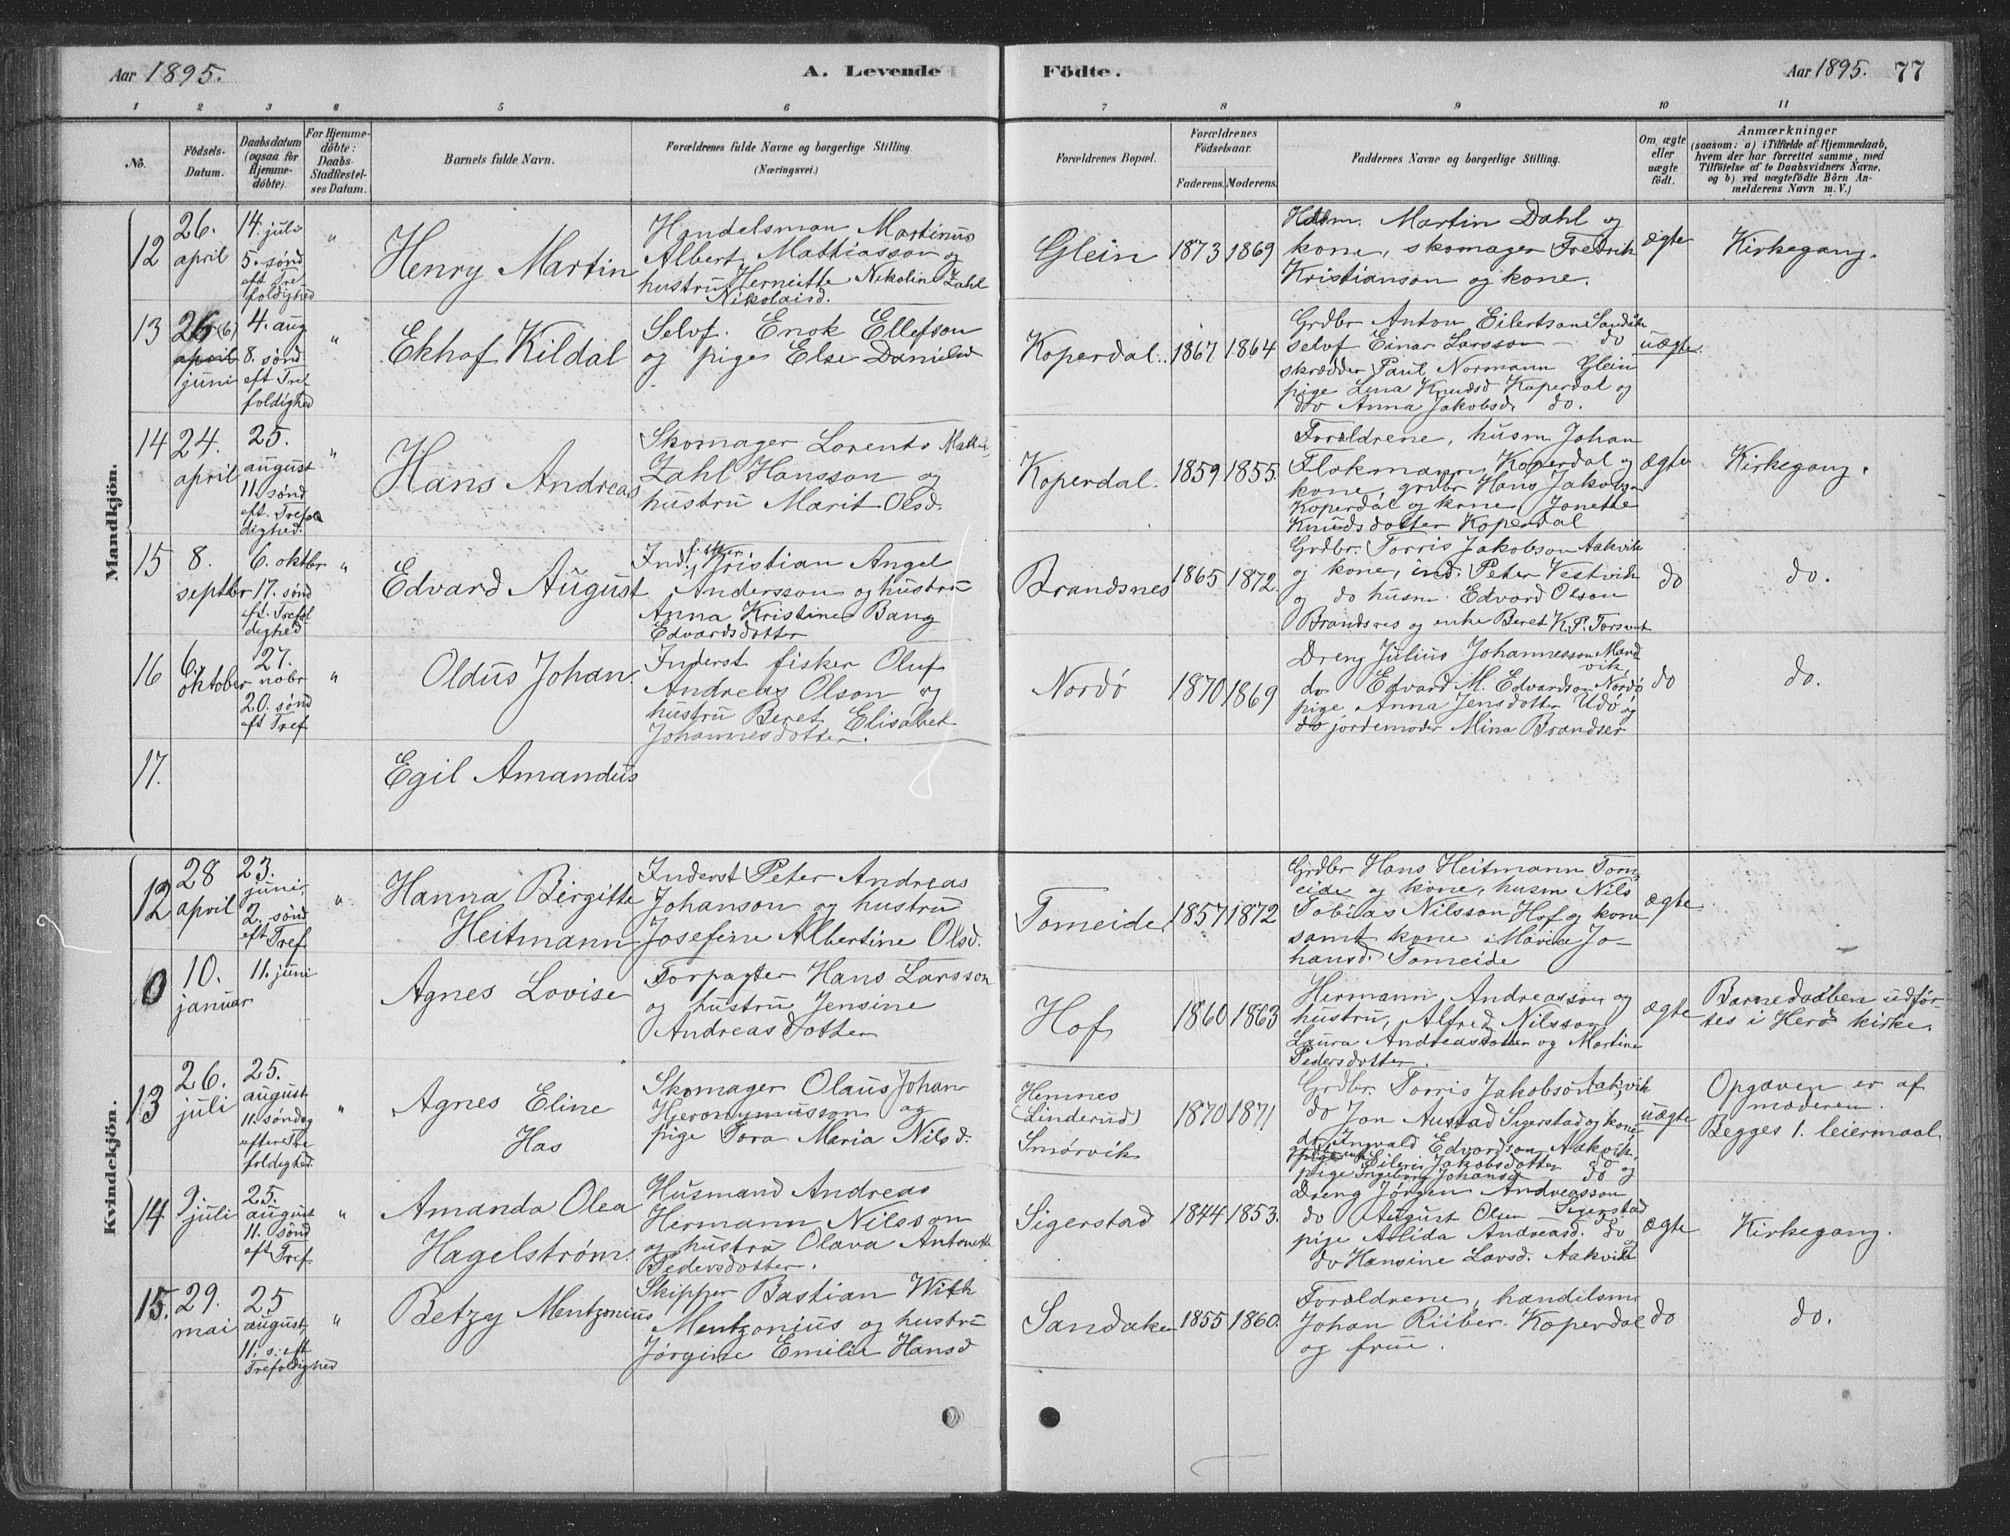 Aar 1895.
A. Levende
Födte.
Aar 1895. 77
1 2 3 4 5 6 7 8 9 10 11
No.
Födsels-
Datum.
Daabsdatum
(ogsaa for
Hjemme-
döbte).
For Hjemme-
döbte:
Daabs-
Stadfæstel-
ses Datum.
Barnets fulde Navn.
Forældrenes fulde Navne og borgerlige Stilling
(Næringsvei.)
Forældrenes Bopæl.
Forældrenes
Födselsaar.
Faderens. Moderens.
Faddernes Navne og borgerlige Stilling.
Om ægte
eller
uægte
födt.
Anmærkninger
(saasom: a) i Tilfælde af Hjemmedaab,
hvem der har forrettet samme, med
Tilföielse af to Daabsvidners Navne,
og b) ved uægtefödte Börn An-
melderens Navn m. V.)
Mandkjön.
12
26.
april
14. juli
5. sønd
eft Tre-
foldighed
"
Henry Martin
Handelsman Martinus
Albert Mattiasson og
hustru Herneitte Nikolin Zahl
Nikolaisd.
Glein
1873
1869
Husm. Martin Dahl og
kone, skomager Fredrik
Kristianson og kone.
ægte
Kirkegang.
13
26 (6)
april
juni
4. aug
8. sønd
eft Tref
foldighed
"
Ekhof Kildal
Selvf. Enok Ellefson
og pige Else Danielsd
Koperdal.
1867
1864
Grdbr Anton Eilertson Sandåk
selvf Einar Larsson - do
skrædder Paul Normann Glein
pige Lina Knudsd Koperdal og
do Anna Jakobsd. do.
uægte
14
24.
april
25.
august
11. sønd
eft. Trefol
dighed.
"
Hans Andreas
Skomager Lorents
Zahl Hansson og
hustru Marit Olsd.
Koperdal.
1859
1855.
Forældrene, husm. Johan
Flokmann Koperdal og
kone, grdbr Hans Jakobs.
Koperdal og kone Jonette
Knudsdotter Koperdal
ægte
Kirkegang.
15
8.
septbr
6. oktbr
17. sønd
eft. Trefol
dighed
"
Edvard August
Ind. fisker Kristian Angel
Andersson og hustru
Anna Kristine Bang
Edvardsdotter
Brandsnes
1865
1872.
Grdbr. Torris Jakobson Aakvik
og kone, ind. Peter Vestvik
og do husm. Edvard Olson
Brandsnes og enke Beret K. P. Forsvik
do
do.
16
6.
oktober
27.
nobr
20. sønd
eft Tref
"
Oldus Johan.
Inderst fisker Oluf
Andreas Olson og
hustru Beret Elisabet
Johannesdotter.
Nordø
1870
1869
Dreng Julius Johannesson Mand
vik,
do Edvard M. Edvardson Nordø
pige Anna Jensdotter Udø og
do jordemoder Mina Brandser
do
do.
17.
Egil Amandus
Kvindekjön.
12
28
april
23.
juni
2. sønd
eft Tref
"
Hanna Birgitte
Heitmann
Inderst Peter Andreas
Johanson og hustru
Josefine Albertine Olsd.
Tomeide
1857
1872
Grdbr Hans Heitmann Tom-
eide og kone, husm Nils
Tobias Nilsson Hof og kone
samt kone Maria Jo-
hansd. Tomeide
ægte
0
10.
januar
11. juni
Agnes Lovise
Forpagter Hans Larsson
og hustru Jensine
Andreasdotter
Hof
1860
1863
Hermann Andreasson og
hustru, Alfred Nilsson
Laura Andreasdotter og Martine
Pedersdotter.
ægte
Barnedaaben udför-
tes i Herö kirke.
13
26.
juli
25.
august
11. søndag
efter Tre
foldighed.
"
Agnes Eline
Has
Skomager Olaus Johan
Hjeronymusson og
pige Tora Maria Nilsd.
Hemnes
(Linderud)
Smørvik
1870
1871
Grdbr. Torris Jakobson Aakvik,
do Jon Austad Sigerstad og kone,
do Ingvald Edvardson Aakvik,
pige Eileri Jakobsdotter do og
pige Ingeborg Johansd do
uægte
Opgaven er af
moderen.
Begges 1. leiermaal.
14
9
juli
25.
august
11. sønd
eft Tref
"
Amanda Olea
Hagelstrøm.
Husmand Andreas
Hermann Nilsson
og hustru Olava Antonette
Pedersdotter.
Sigerstad
1844
1853.
Dreng Jørgen Andreasson
Sigerstad
do August Olsen - do
pige Alida Andreasd. do og
do Hansine Larsd. Aakvik
ægte
Kirkegang.
15.
29.
mai
25
august,
11. s. eft
Trefoldighed
"
Betzy Mentzonius
Skipper Bastian With
Mentzonius og hustru
Jørgine Emilie Hansd
Sandaker
1855
1860.
Forældrene, handelsm.
Johan Riiber Koperdal
og frue.
do
do.